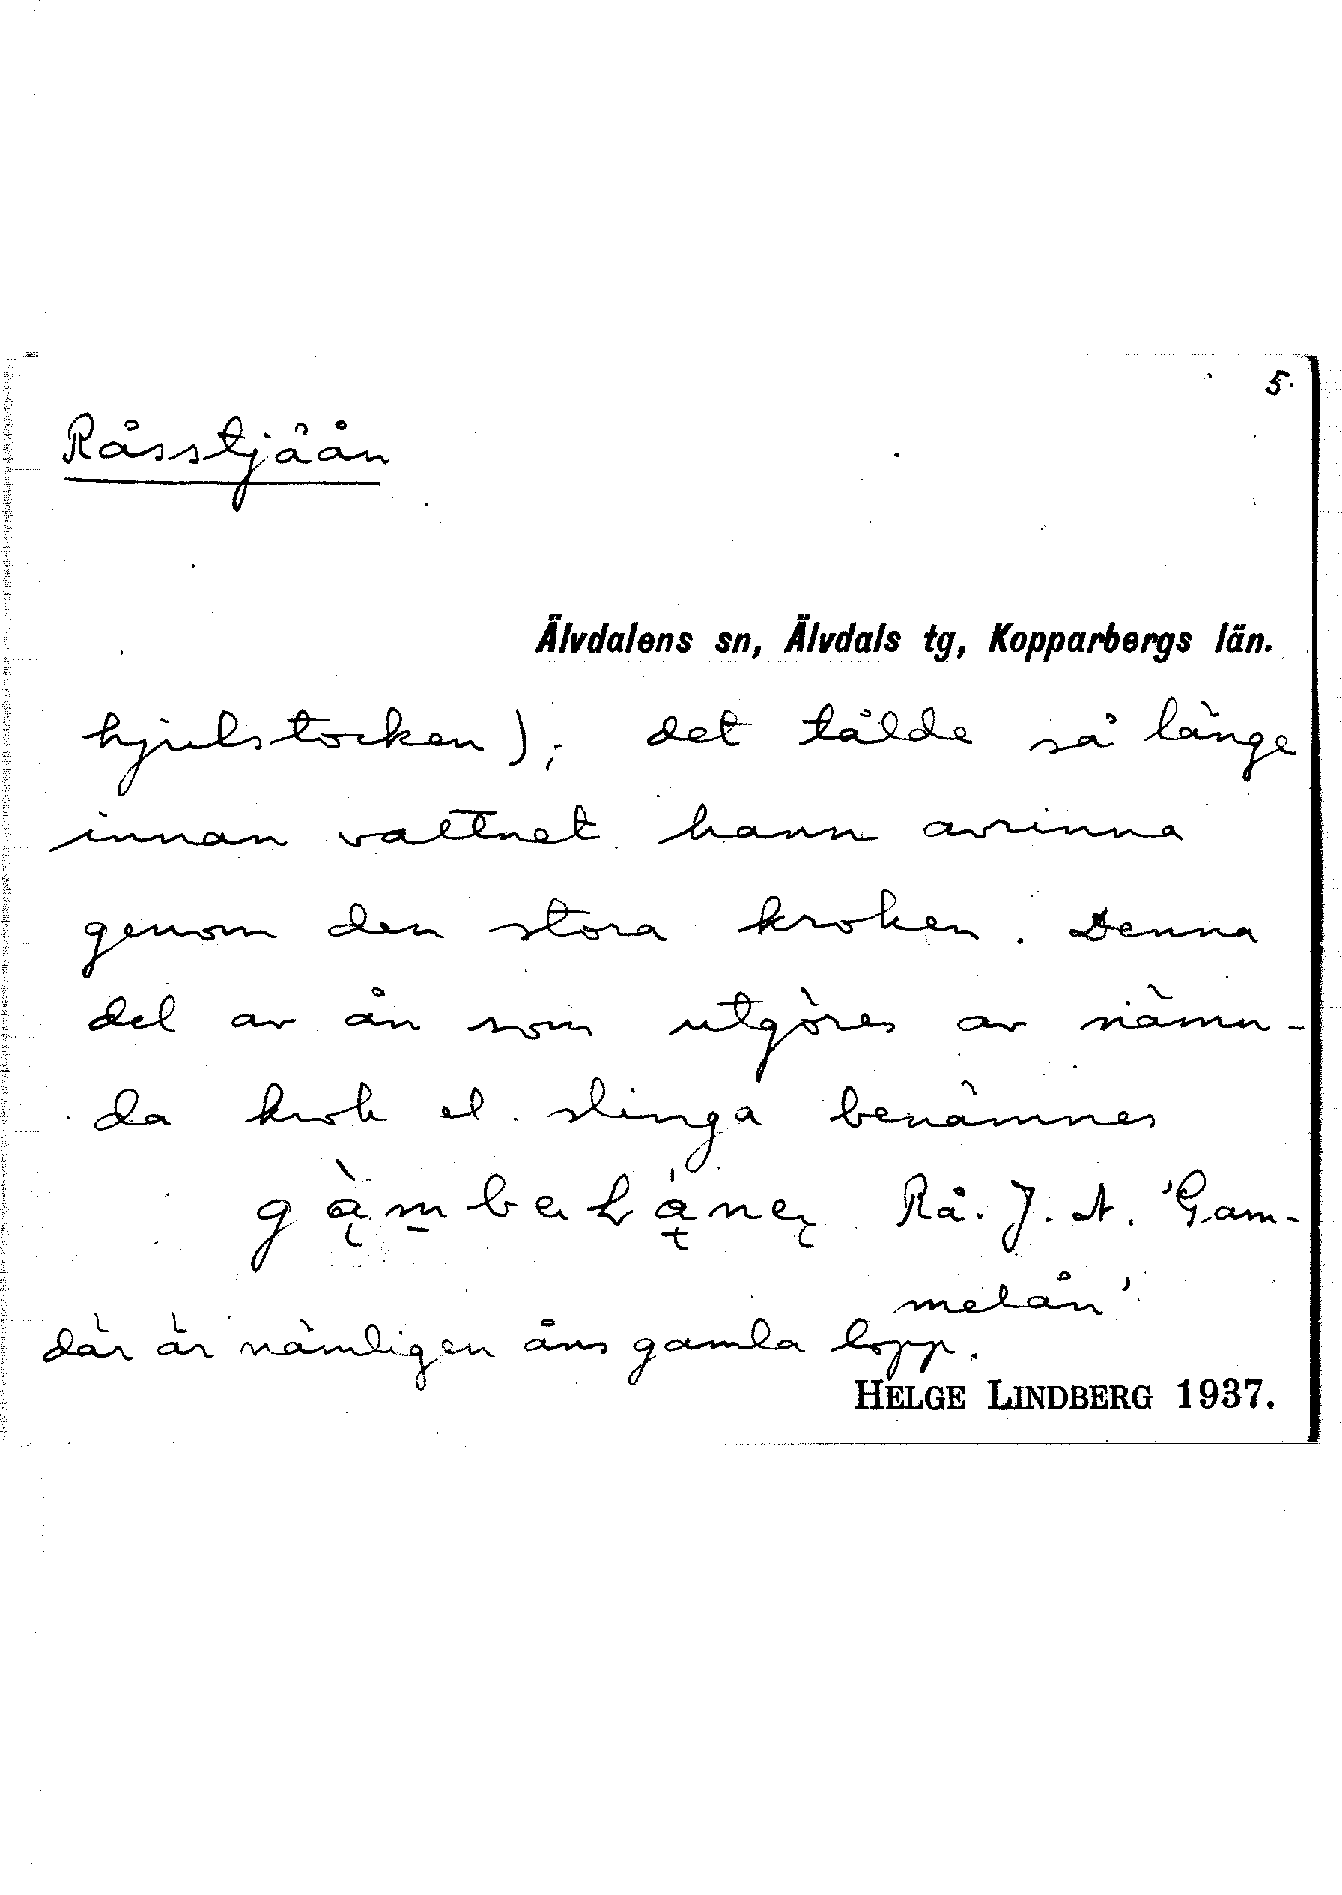 5.
Råsstjåån
Älvdalens sn, Älvdals tg, Kopparbergs län.
hjulstocken); det tålde så länge
innan vattnet hann avrinna
genom den stora kroken. Denna
del av ån som utgöres av nämn-
da krok el. slinga benämnes
Rå. J. A. 'Gam-
melån'
där är nämligen åns gamla lopp.
HELGE LINDBERG 1937.